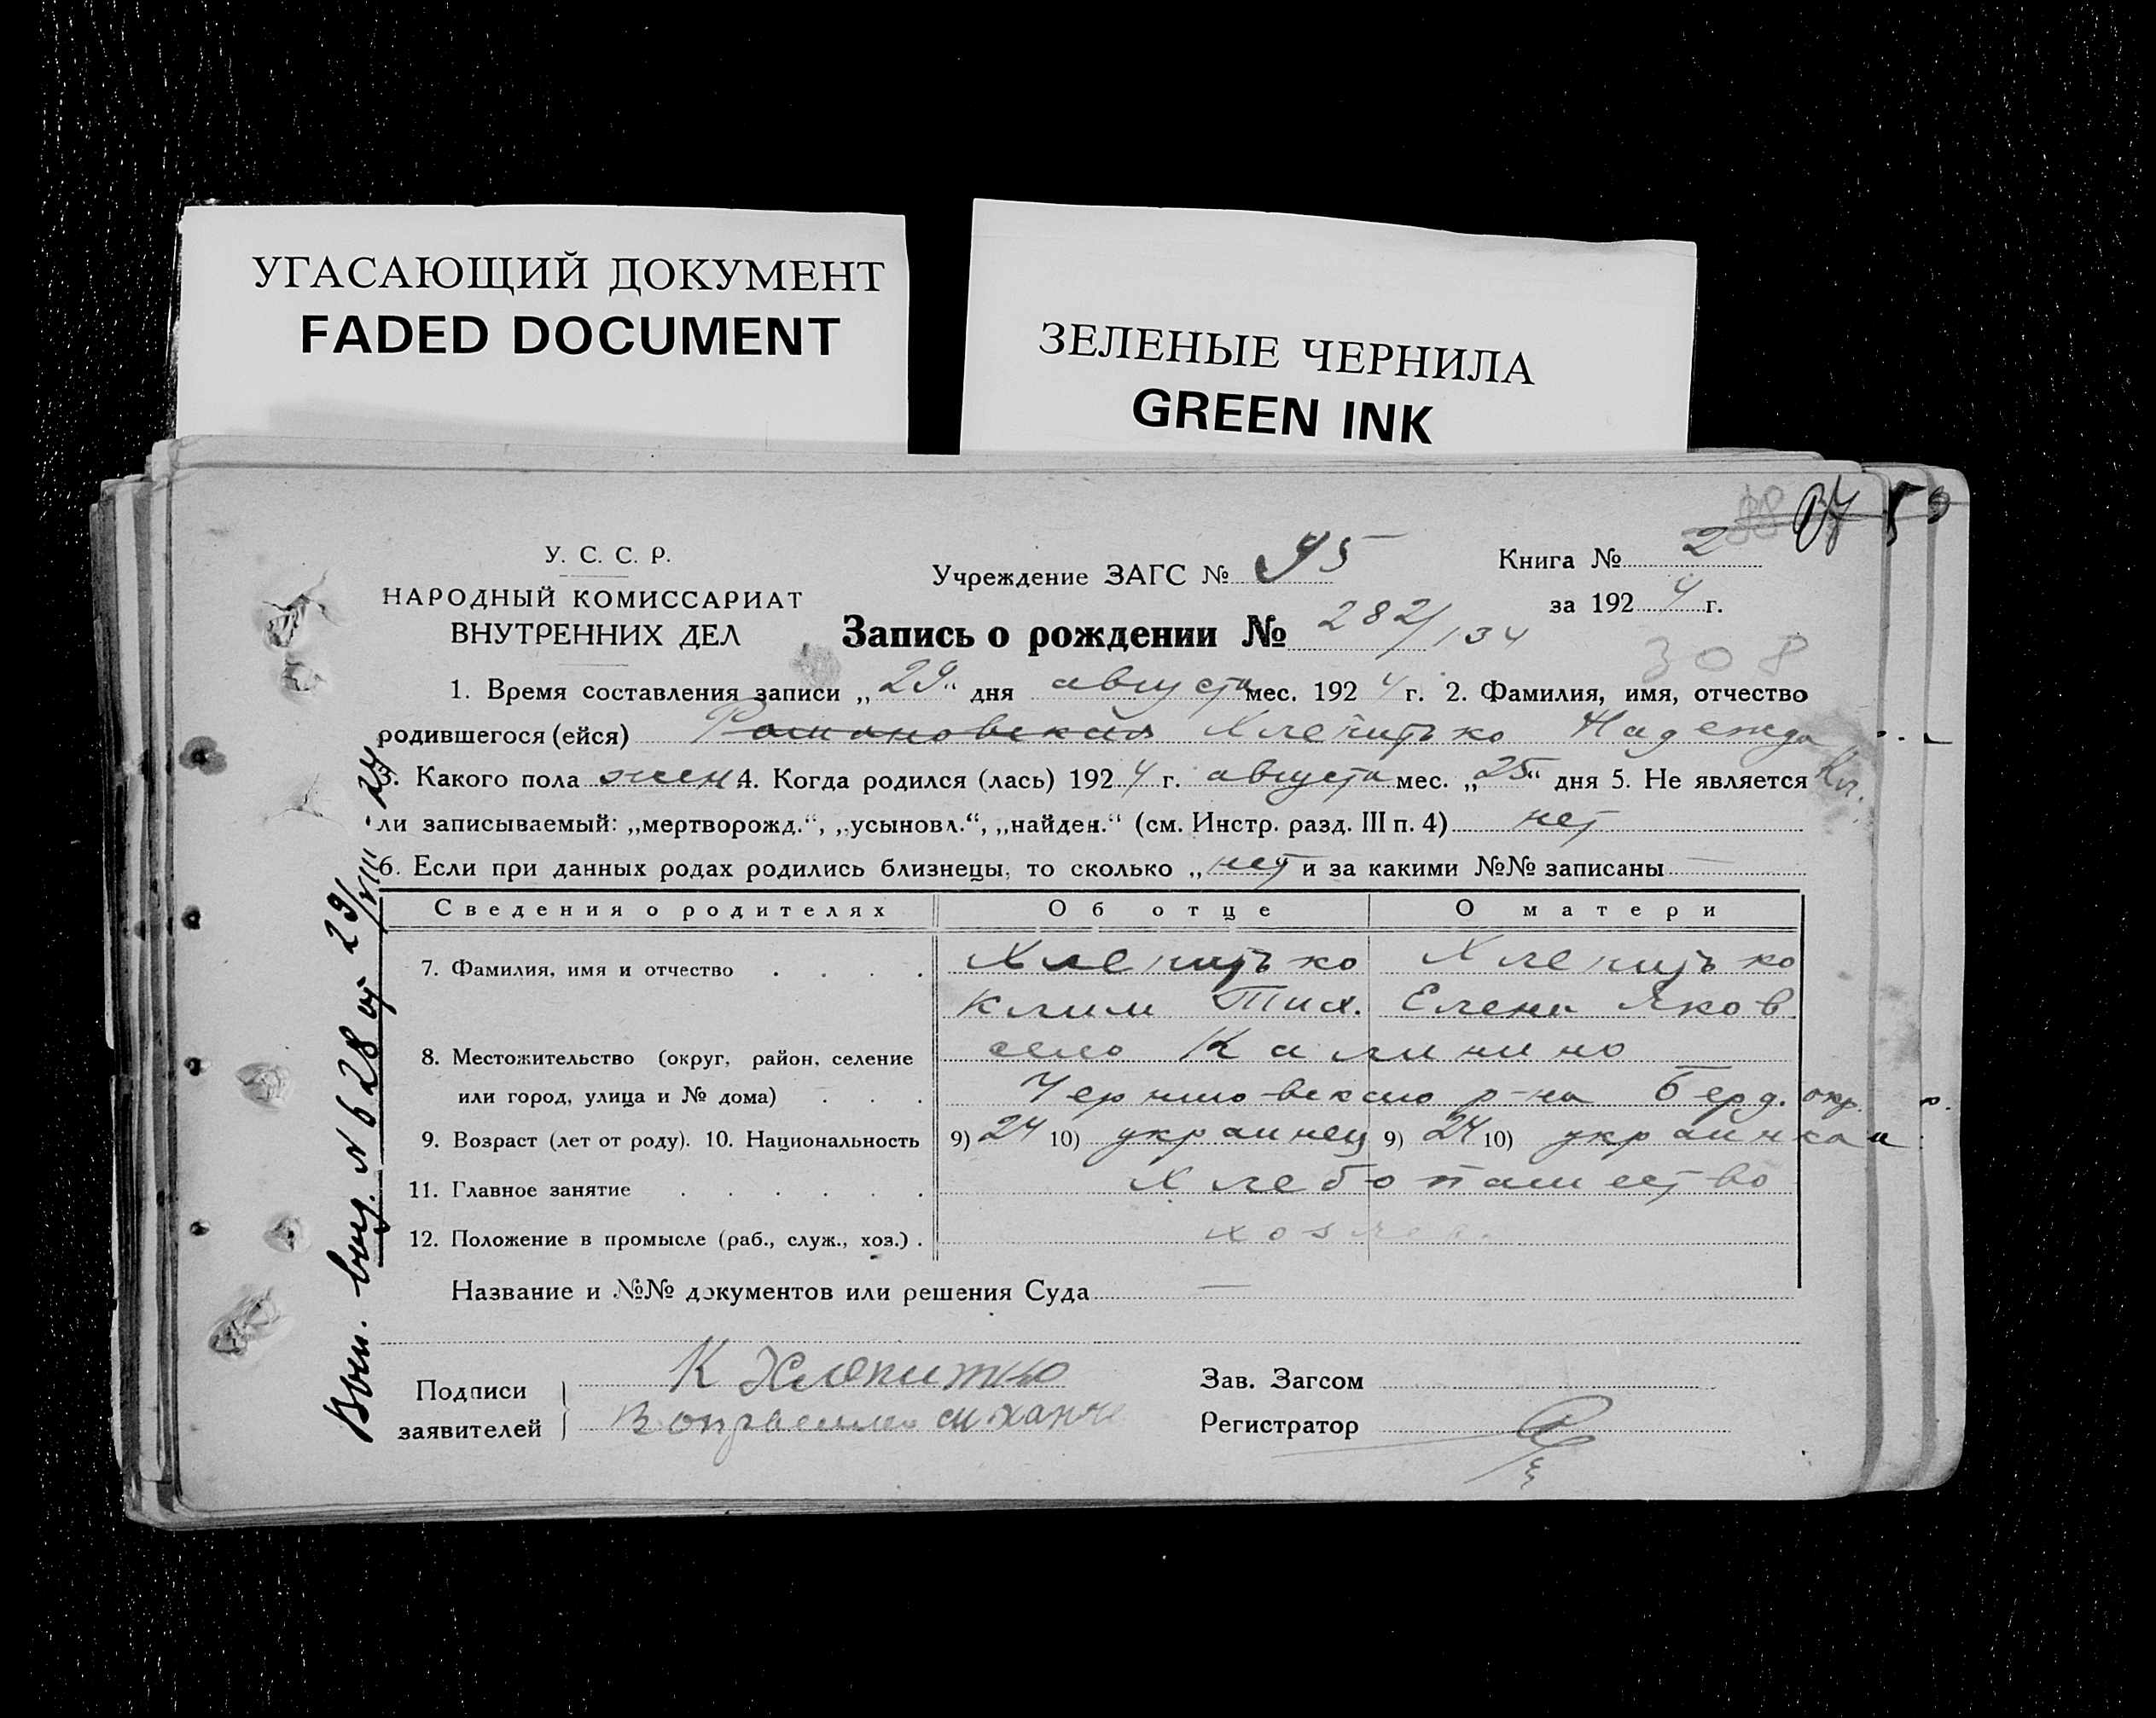 УГАСАЮЩИЙ ДОКУМЕНТ
FADED DOCUMENT
ЗЕЛЕНЫЕ ЧЕРНИЛА
GREEN INK
У. С. С. Р.
НАРОДНЫЙ КОМИССАРИАТ
ВНУТРЕННИХ ДЕЛ
Учреждение ЗАГС № 95
Книга № 2
за 1924 г.
Запись о рождении № 282/134
308
1. Время составления записи „29“ дня августа мес. 1924 г. 2. Фамилия, имя, отчество
родившегося (ейся) Романовская Хлепитько Надежда
3. Какого пола жен 4. Когда родился (лась) 1924 г. августа мес. „25“ дня 5. Не является Кл.
ли записываемый: „мертворожд.“, „усыновл.“, „найден.“ (см. Инстр. разд. III п. 4) нет
6. Если при данных родах родились близнецы, то сколько „нет и за какими №№ записаны —
Сведения о родителях Об отце О матери
7. Фамилия, имя и отчество Хлепитько Хлепитько
Клим Тих. Елена Яков
8. Местожительство (округ, район, селение село Калинино
или город, улица и № дома) р-на Берд. окр.
9. Возраст (лет от роду). 10. Национальность 9) 24 10) украинец 9) 24 10) украинка
11. Главное занятие Хлебопашество
12. Положение в промысле (раб., служ., хоз.)
Название и №№ документов или решения Суда —
Подписи заявителей
К Хлепитко
Зав. Загсом
Регистратор
Вып. выд. № 628 от 29/VIII 24